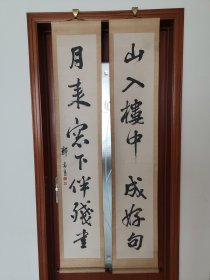 山入樓中成好句
月来窓下伴殘書